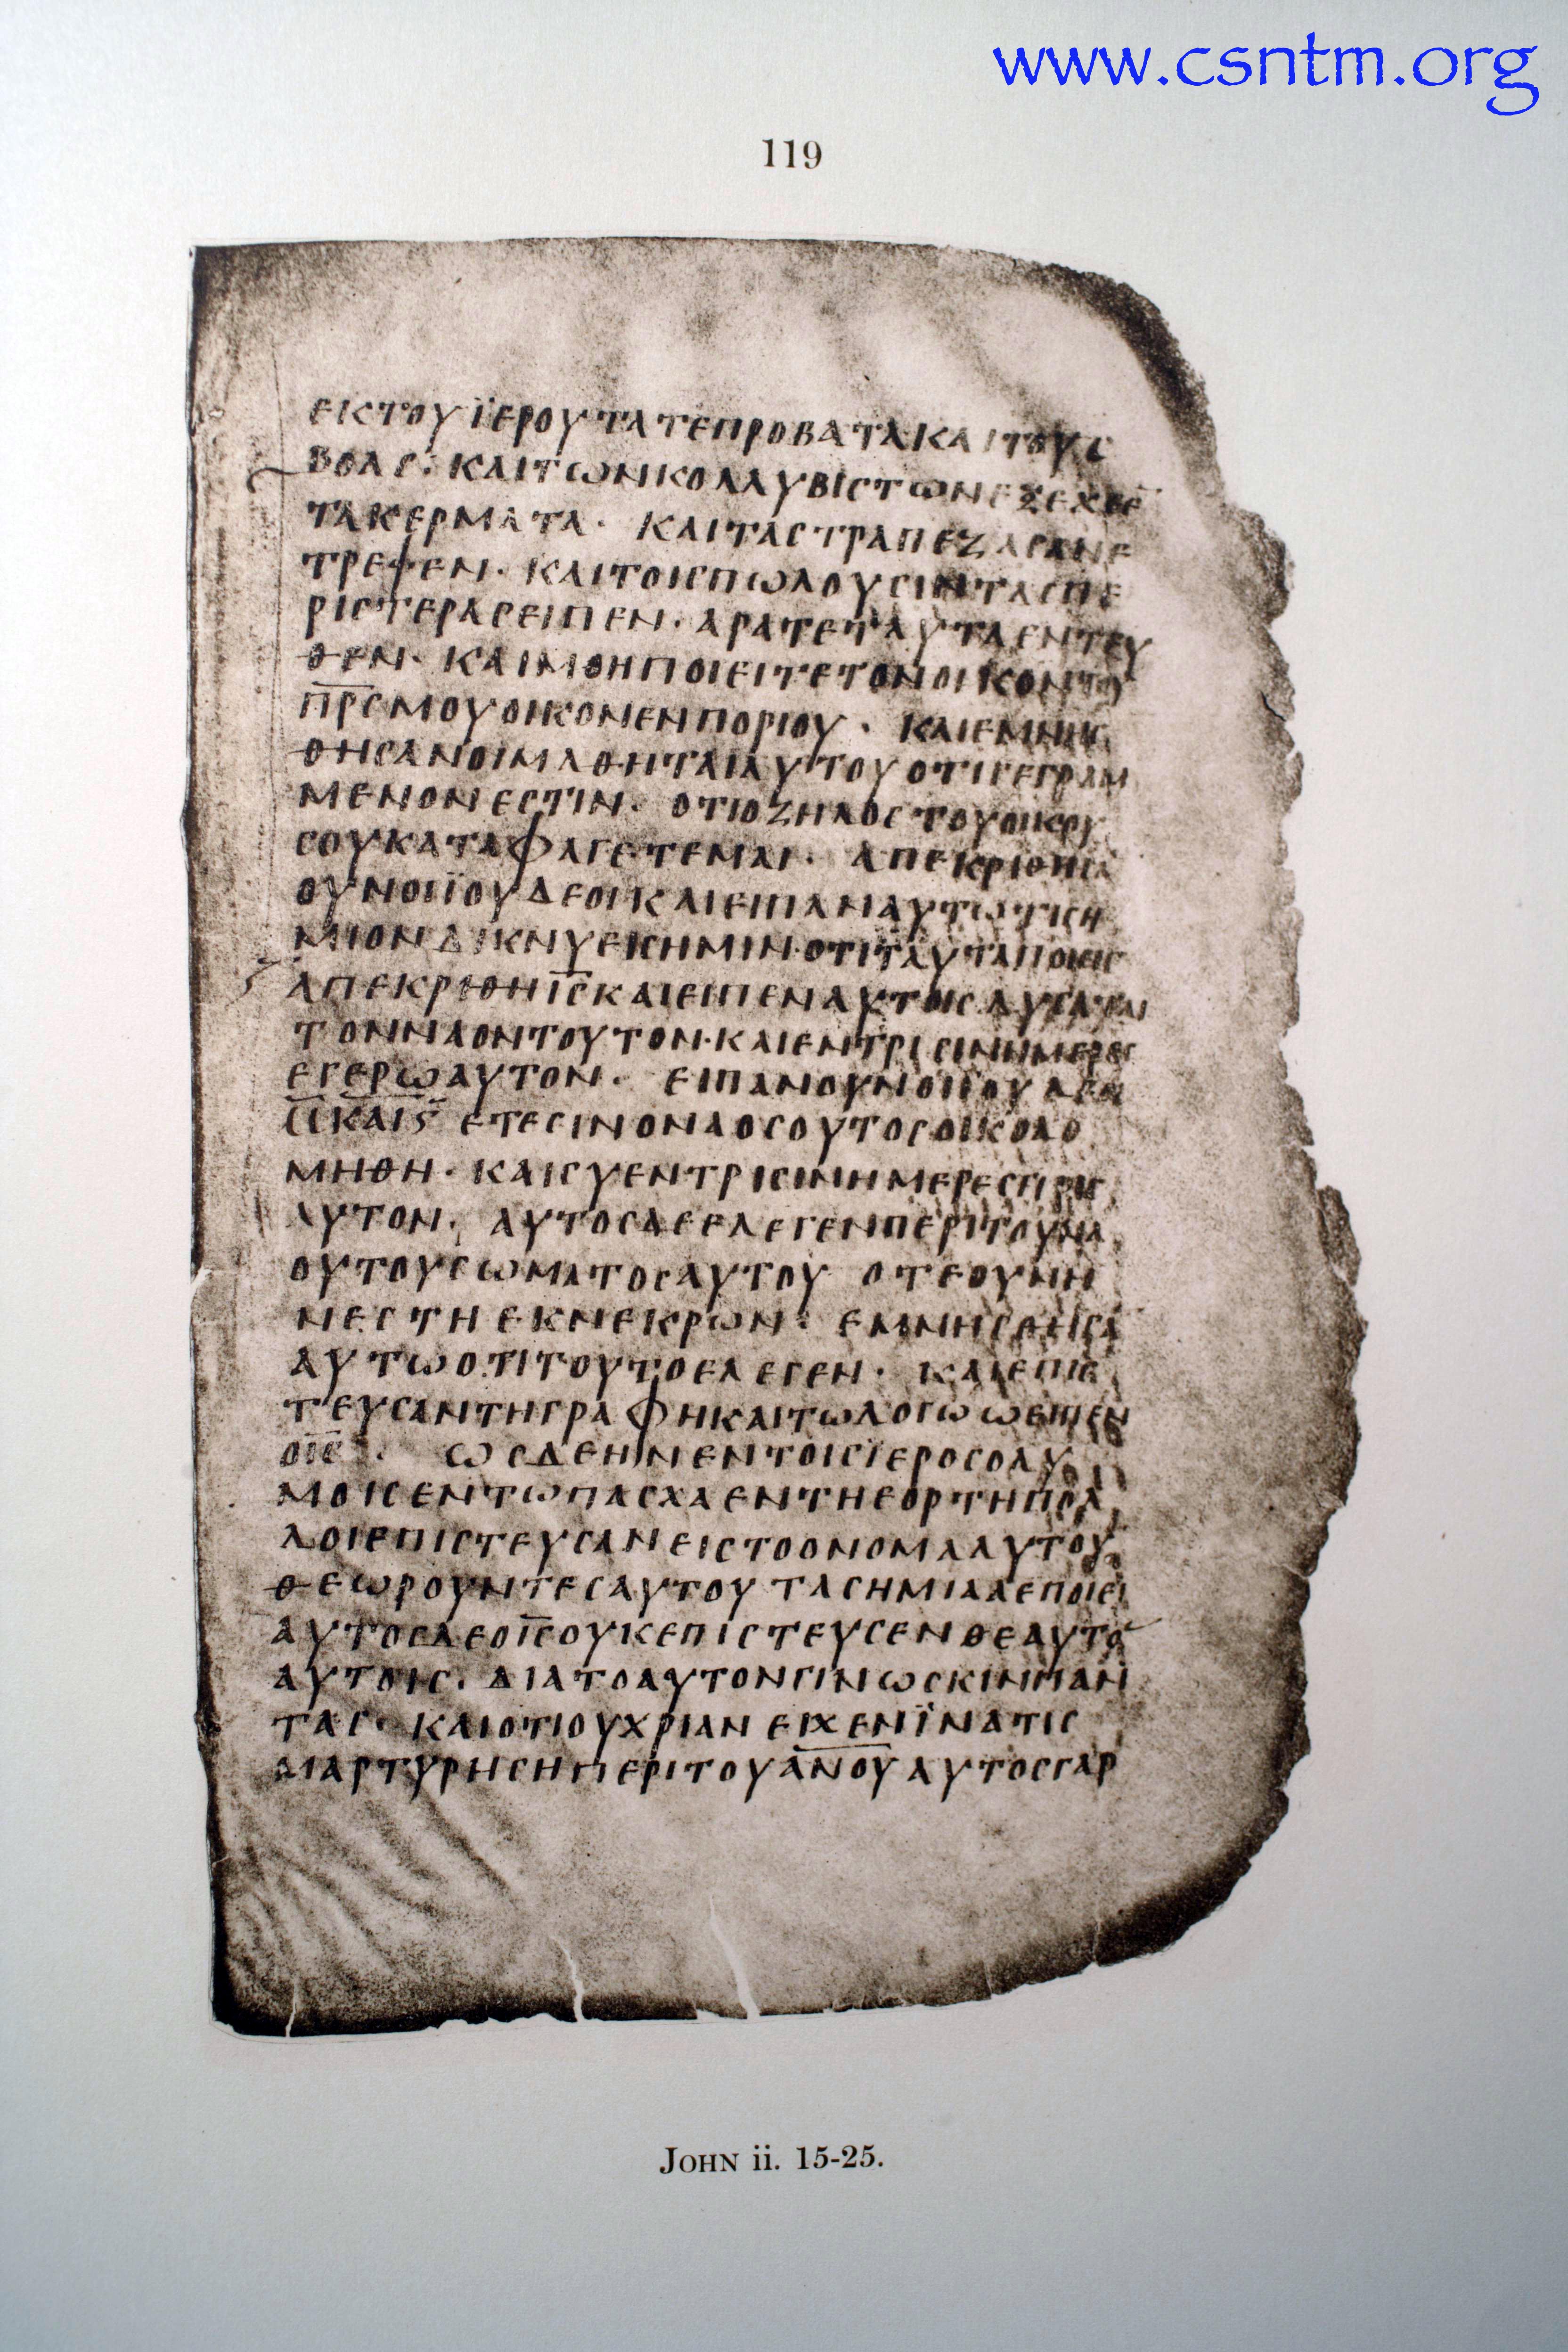 www.csntm.org
119
ΕΚΤΟΥΪΕΡΟΥΤΑΤΕΠΡΟΒΑΤΑΚΑΙΤΟΥϹ
ΒΟΑϹ· ΚΑΙΤΩΝΚΟΛΛΥΒΙϹΤΩΝΕΞΕΧΕΕ̅
ΤΑΚΕΡΜΑΤΑ· ΚΑΙΤΑϹΤΡΑΠΕΖΑϹΑΝΕ
ΤΡΕΨΕΝ· ΚΑΙΤΟΙϹΠΩΛΟΥϹΙΝΤΑϹΠΕ
ΡΙϹΤΕΡΑϹΕΙΠΕΝ· ΑΡΑΤΕΤΑΥΤΑΕΝΤΕΥ
ΘΕΝ· ΚΑΙΜΘΗΠΟΙΕΙΤΕΤΟΝΟΙΚΟΝΤΟΥ
Π̅Ρ̅Ϲ̅ΜΟΥΟΙΚΟΝΕΝΠΟΡΙΟΥ· ΚΑΙΕΜΝΗϹ
ΘΗϹΑΝΟΙΜΑΘΗΤΑΙΑΥΤΟΥΟΤΙΓΕΓΡΑΜ
ΜΕΝΟΝΕϹΤΙΝ· ΟΤΙΟΖΗΛΟϹΤΟΥΟΙΚΟΥ
ϹΟΥΚΑΤΑΦΑΓΕΤΕΜΑΙ· ΑΠΕΚΡΙΘΗϹΑ
ΟΥΝΟΙΪΟΥΔΕΟΙΚΑΙΕΙΠΑΝΑΥΤΩΤΙϹΗ
ΜΙΟΝΔΙΚΝΥΕΙϹΗΜΙΝ·ΟΤΙΤΑΥΤΑΠΟΙΕΙϹ
ΑΠΕΚΡΙΘΗΙ̅Ϲ̅ΚΑΙΕΙΠΕΝΑΥΤΟΙϹΛΥϹΑΤΑΙ
ΤΟΝΝΑΟΝΤΟΥΤΟΝ·ΚΑΙΕΝΤΡΙϹΙΝΗΜΕΡΕϹ
ΕΓΕΡΩΑΥΤΟΝ· ΕΙΠΑΝΟΥΝΟΙΪΟΥΔΕΟΙ
Μ̅ΚΑΙϚ̅ ΕΤΕϹΙΝΟΝΑΟϹΟΥΤΟϹΟΙΚΟΔΟ
ΜΗΘΗ· ΚΑΙϹΥΕΝΤΡΙϹΙΝΗΜΕΡΕϹΕΓΙΡΙϹ
ΑΥΤΟΝ· ΑΥΤΟϹΔΕΕΛΕΓΕΝΠΕΡΙΤΟΥΝΑ
ΟΥΤΟΥϹΩΜΑΤΟϹΑΥΤΟΥ ΟΤΕΟΥΝΗ
ΝΕϹΤΗΕΚΝΕΚΡΩΝ· ΕΜΝΗϹΘΗϹΑ̅
ΑΥΤΩΟΤΙΤΟΥΤΟΕΛΕΓΕΝ· ΚΑΙΕΠΙϹ
ΤΕΥϹΑΝΤΗΓΡΑΦΗΚΑΙΤΩΛΟΓΩΩΕΙΠΕΝ
ΟΙ̅Ϲ̅· ΩϹΔΕΗΝΕΝΤΟΙϹΪΕΡΟϹΟΛΥ
ΜΟΙϹΕΝΤΩΠΑϹΧΑΕΝΤΗΕΟΡΤΗΠΟΛ
ΛΟΙΕΠΙϹΤΕΥϹΑΝΕΙϹΤΟΟΝΟΜΑΑΥΤΟΥ
ΘΕΩΡΟΥΝΤΕϹΑΥΤΟΥΤΑϹΗΜΙΑΑΕΠΟΙΕΙ
ΑΥΤΟϹΔΕΟΙ̅Ϲ̅ΟΥΚΕΠΙϹΤΕΥϹΕΝΘΕΑΥΤΟ̅
ΑΥΤΟΙϹ· ΔΙΑΤΟΑΥΤΟΝΓΙΝΩϹΚΙΝΠΑΝ
ΤΑϹ· ΚΑΙΟΤΙΟΥΧΡΙΑΝΕΙΧΕΝΪΝΑΤΙϹ
ΜΑΡΤΥΡΗϹΗΠΕΡΙΤΟΥΑ̅Ν̅Ο̅Υ̅ΑΥΤΟϹΓΑΡ
JOHN ii. 15-25.